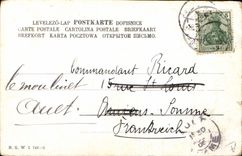 LEVELEZŐ-LAP POSTKARTE DOPISNICE
CARTE POSTALE CARTOLINA POSTALE BRIEFKAART
BREFKORT KARTA POCZTOWA ОТКРЫТОЕ ПИСЬМО
Commandant Ricard
15 rue St Louis
Ault
Amiens. Somme
Frankreich